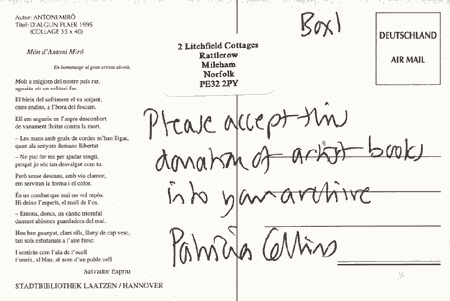 Autor: ANTONI MIRÓ
Títol: D'ALGUN PLAER 1995
(COLLAGE 55 x 40)
Món d'Antoni Miró
En homenatge al gran artista alcoià.
Molt a migjorn del nostre país rar,
El bleix del sofriment el va sotjant,
ones endins, a l'hora del foscam.
Ell em seguria en l'aspre desconhort
de vanament lluitar contra la mort.
– Les mans amb graix de cordes m'han lligat,
quan als senyors demano llibertat.
– No puc fer res per ajudar ningú,
perquè jo sóc tan desvalgut com tu.
Però sense descans, amb viu clamor,
em serviran la forma i el color.
És un combat que mai no vol repòs.
Hi deixo l'esperit, el moll de l'os.
– Entorn, doncs, un càntic triomfal
damunt abismes guardadors del mal.
Heu ben guanyat, clars ulls, lluny de cap vesc,
tan sols esbatanats a l'aire fresc.
I sentiràs com l'ala de l'ocell
t'uneix, al blau, al som d'un poble vell.
Salvador Espriu
STADTBIBLIOTHEK LAATZEN / HANNOVER
Box 1
2 Litchfield Cottages
Rattlerow
Mileham
Norfolk
PE32 2PY
DEUTSCHLAND
AIR MAIL
Please accept this
donation of artist books
into your archive
Patricia Collins